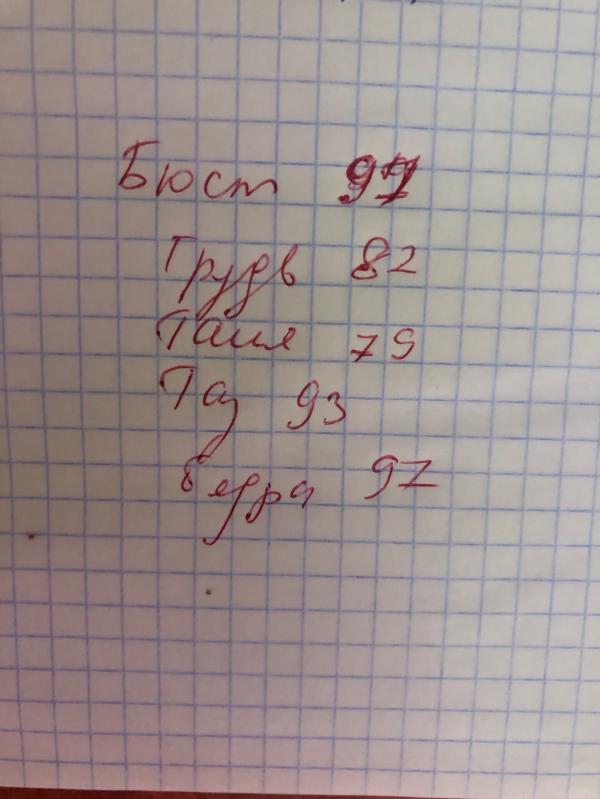 Бюст 97
Грудь 82
Талия 79
Таз 93
бедра 97